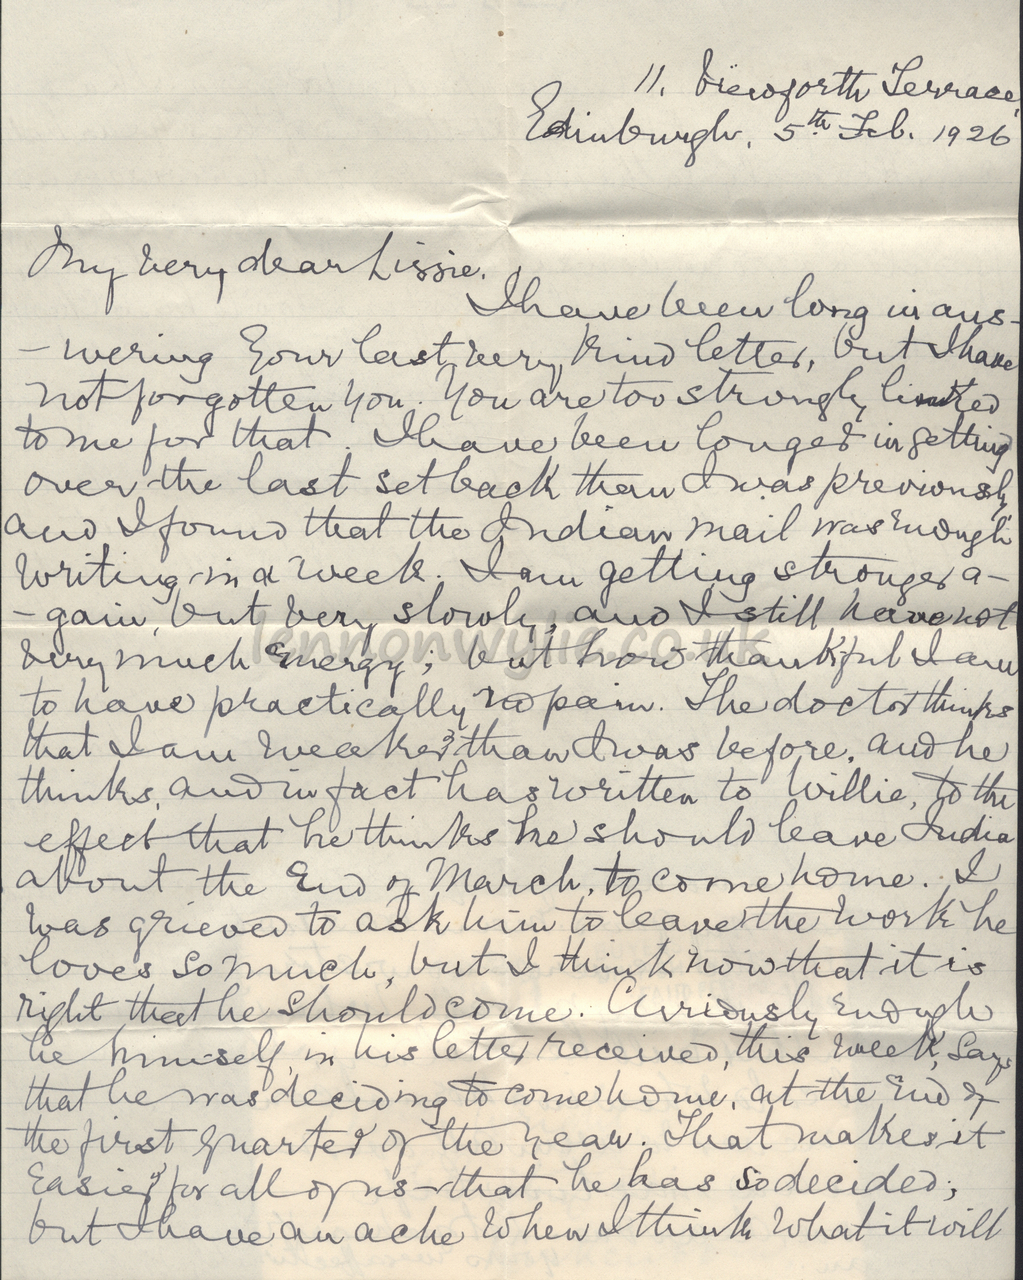 11. Viewforth Terrace,
Edinburgh, 5th Feb. 1926
My very dear Lissie,
I have been long in ans-
-wering your last, very kind letter, but I have
not forgotten you. You are too strongly linked
to me for that. I have been longer in getting
over the last setback than I was previously
and I found that the Indian mail was enough
writing in a week. I am getting stronger a-
-gain, but very slowly, and I still have not
very much energy; but how thankful I am
to have practically no pain. The doctor thinks
that I am weaker than I was before, and he
thinks, and in fact has written to Willie, to the
effect that he thinks he should leave India
about the end of March, to come home. I
was grieved to ask him to leave the work he
loves so much, but I think now that it is
right that he should come. Curiously enough
he himself, in his letter received, this week, says
that he was deciding to come home, at the end of
the first quarter of the year. That makes it
easier for all of us - that he has so decided;
but I have an ache when I think what it will
lennonwylie.co.uk